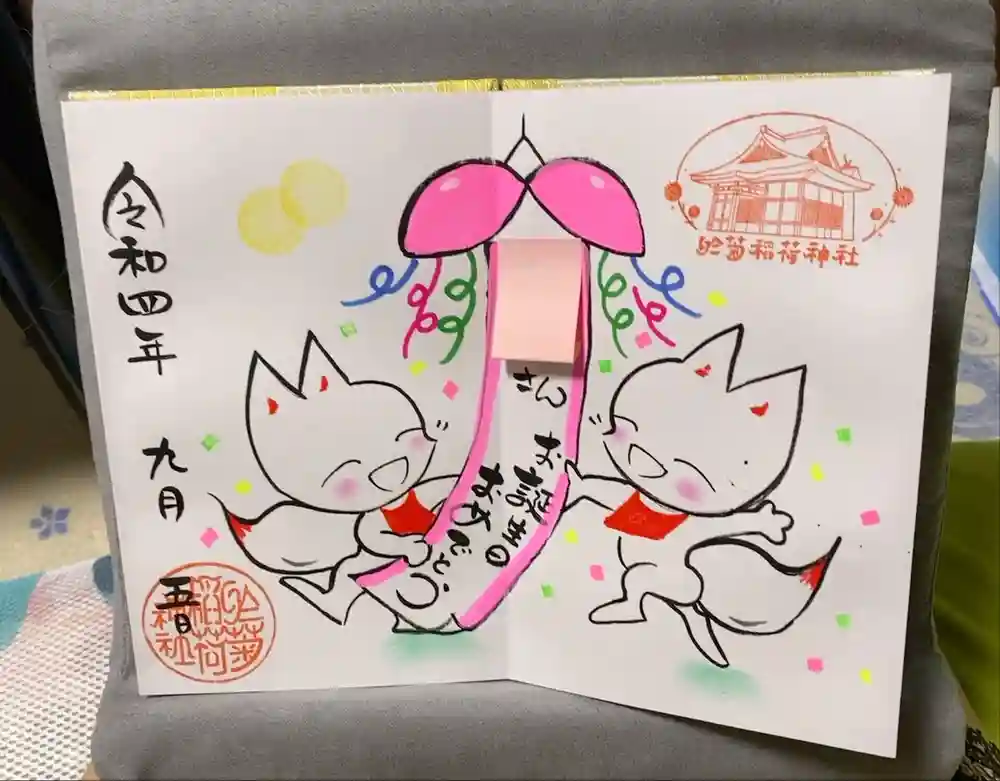 於菊稲荷神社
さん お誕生日
おめでとう
令和四年 九月 五日
於菊
稲荷
神社